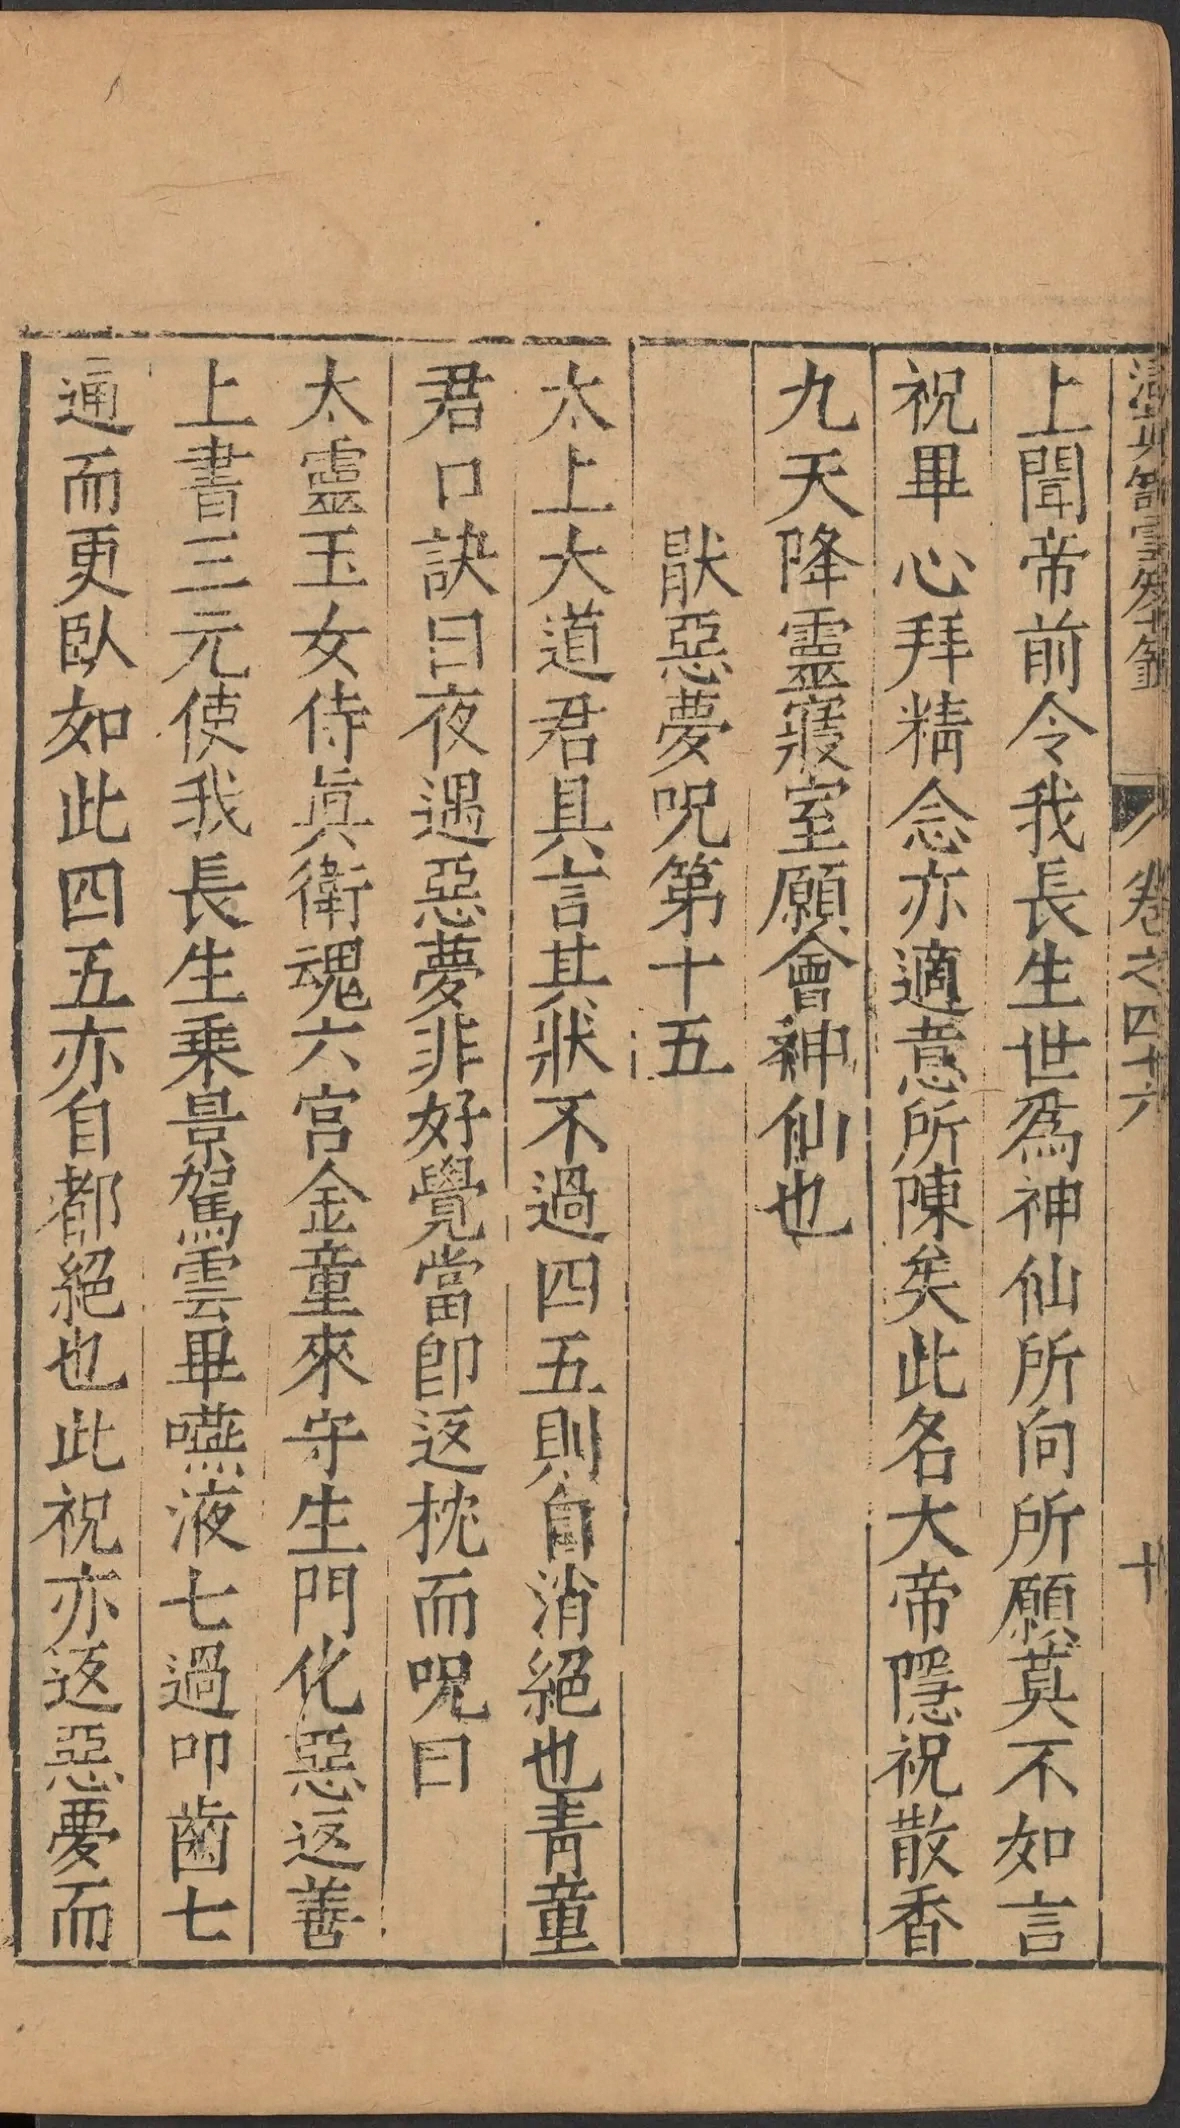 清真館雲笈七籤 卷之四十六 十
上聞帝前令我長生世爲神仙所向所願莫不如言
祝畢心拜精念亦適意所陳矣此名大帝隱祝散香
九天降靈寢室願會神仙也
猒惡夢呪第十五
太上大道君具言其狀不過四五則自消絕也靑童
君口訣曰夜遇惡夢非好覺當卽返枕而呪曰
太靈玉女侍眞衛魂六宮金童來守生門化惡返善
上書三元使我長生乗景駕雲畢嚥液七過叩齒七
通而更臥如此四五亦自都絕也此祝亦返惡夢而